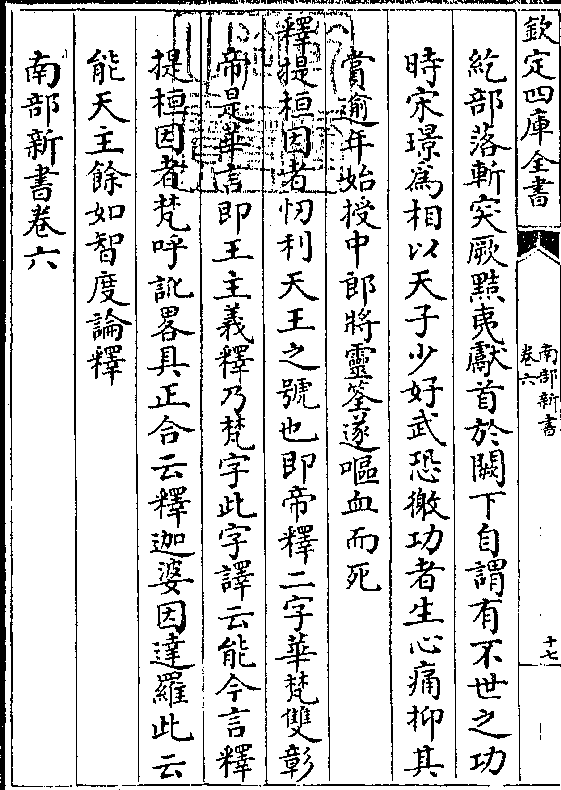 欽定四庫全書
南部新書
卷六
十七
紇部落斬突厥黠夷獻首於闕下自謂有不世之功
時宋璟爲相以天子少好武恐徼功者生心痛抑其
賞逾年始授中郎將靈筌遂嘔血而死
釋提桓因者忉利天王之號也即帝釋二字華梵雙彰
帝是華言即王主義釋乃梵字此字譯云能今言釋
提桓因者梵呼訛畧具正合云釋迦婆因達羅此云
能天主餘如智度論釋
南部新書卷六